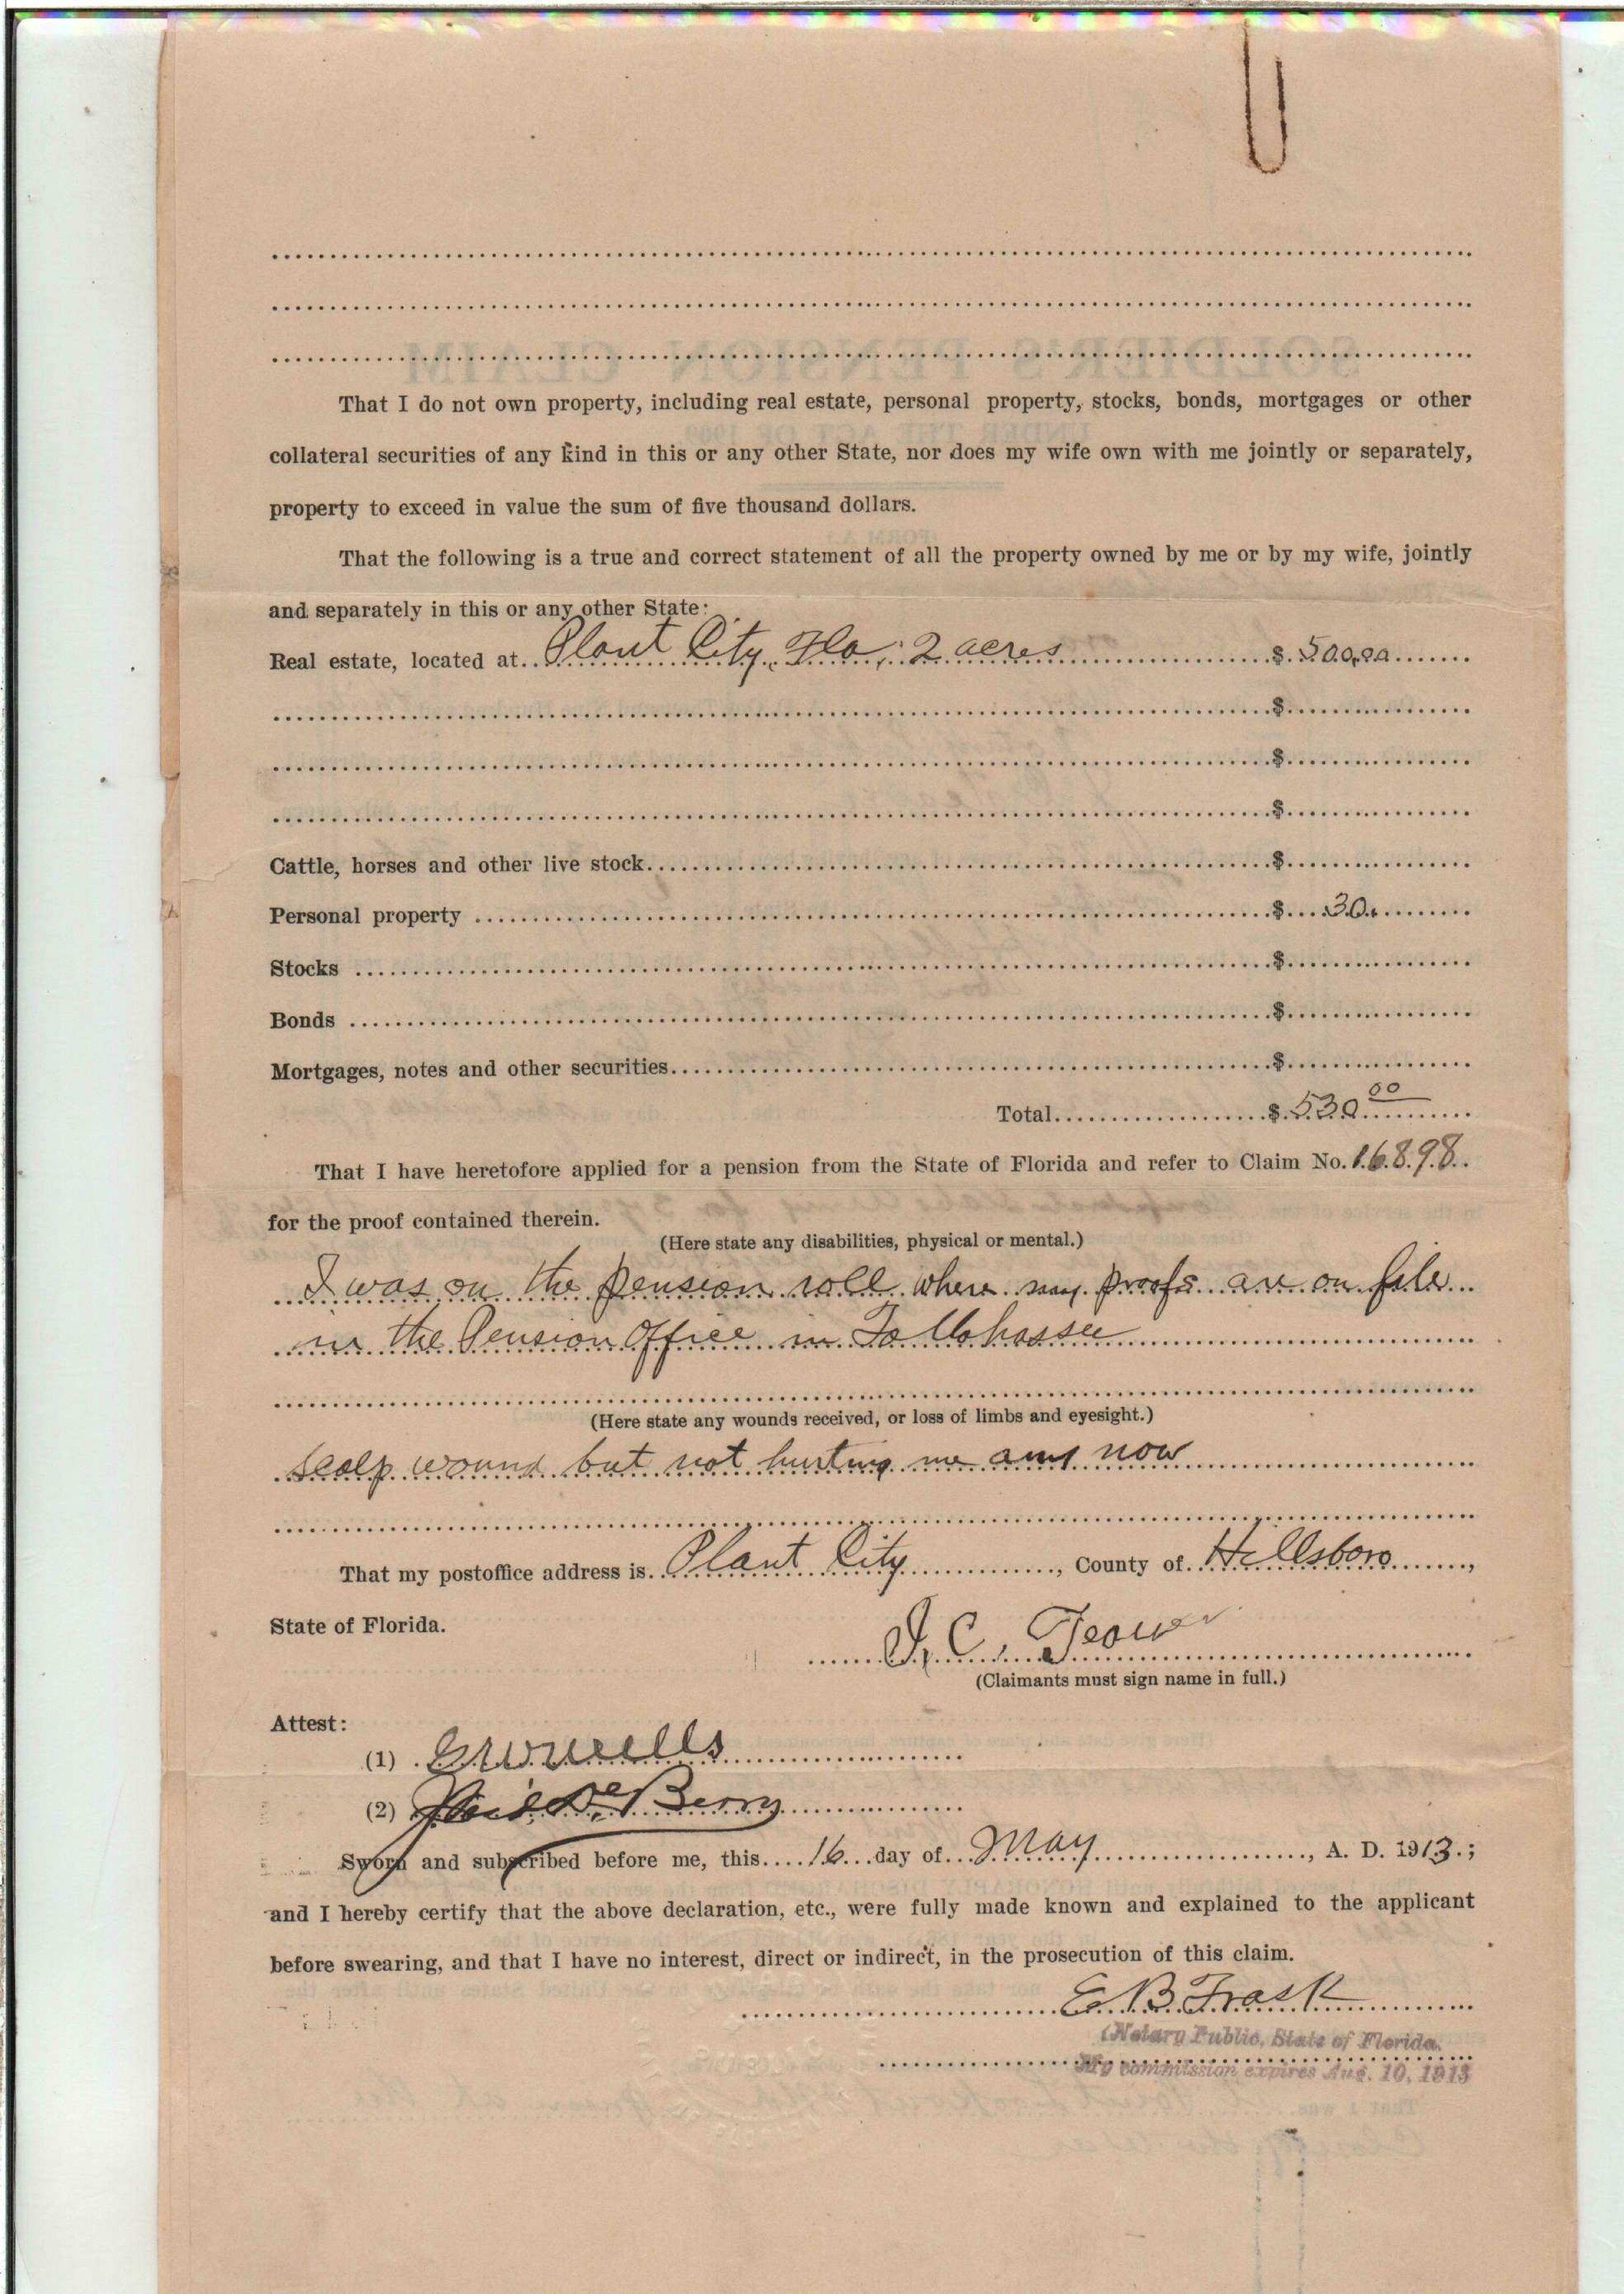 That I do not own property, including real estate, personal property, stocks, bonds, mortgages or other
collateral securities of any kind in this or any other State, nor does my wife own with me jointly or separately,
property to exceed in value the sum of five thousand dollars.
That the following is a true and correct statement of all the property owned by me or by my wife, jointly
and separately in this or any other State:
Real estate, located at Plant City, Fla, 2 acres $ 500,00
$
$
$
Cattle, horses and other live stock $
Personal property $ 30.
Stocks $
Bonds $
Mortgages, notes and other securities $
Total $ 530 00
That I have heretofore applied for a pension from the State of Florida and refer to Claim No. 16898
for the proof contained therein.
(Here state any disabilities, physical or mental.)
I was on the pension roll where my proofs are on file
in the Pension Office in Tallahassee
(Here state any wounds received, or loss of limbs and eyesight.)
Scalp wound but not hurting me any now
That my postoffice address is Plant City, County of Hillsboro,
State of Florida.
(Claimants must sign name in full.)
Attest:
(1)
(2) Berry
Sworn and subscribed before me, this 16 day of May, A. D. 1913.;
and I hereby certify that the above declaration, etc., were fully made known and explained to the applicant
before swearing, and that I have no interest, direct or indirect, in the prosecution of this claim.
E. B. Trask
(Notary Public, State of Florida.
My commission expires Aug. 10, 1913